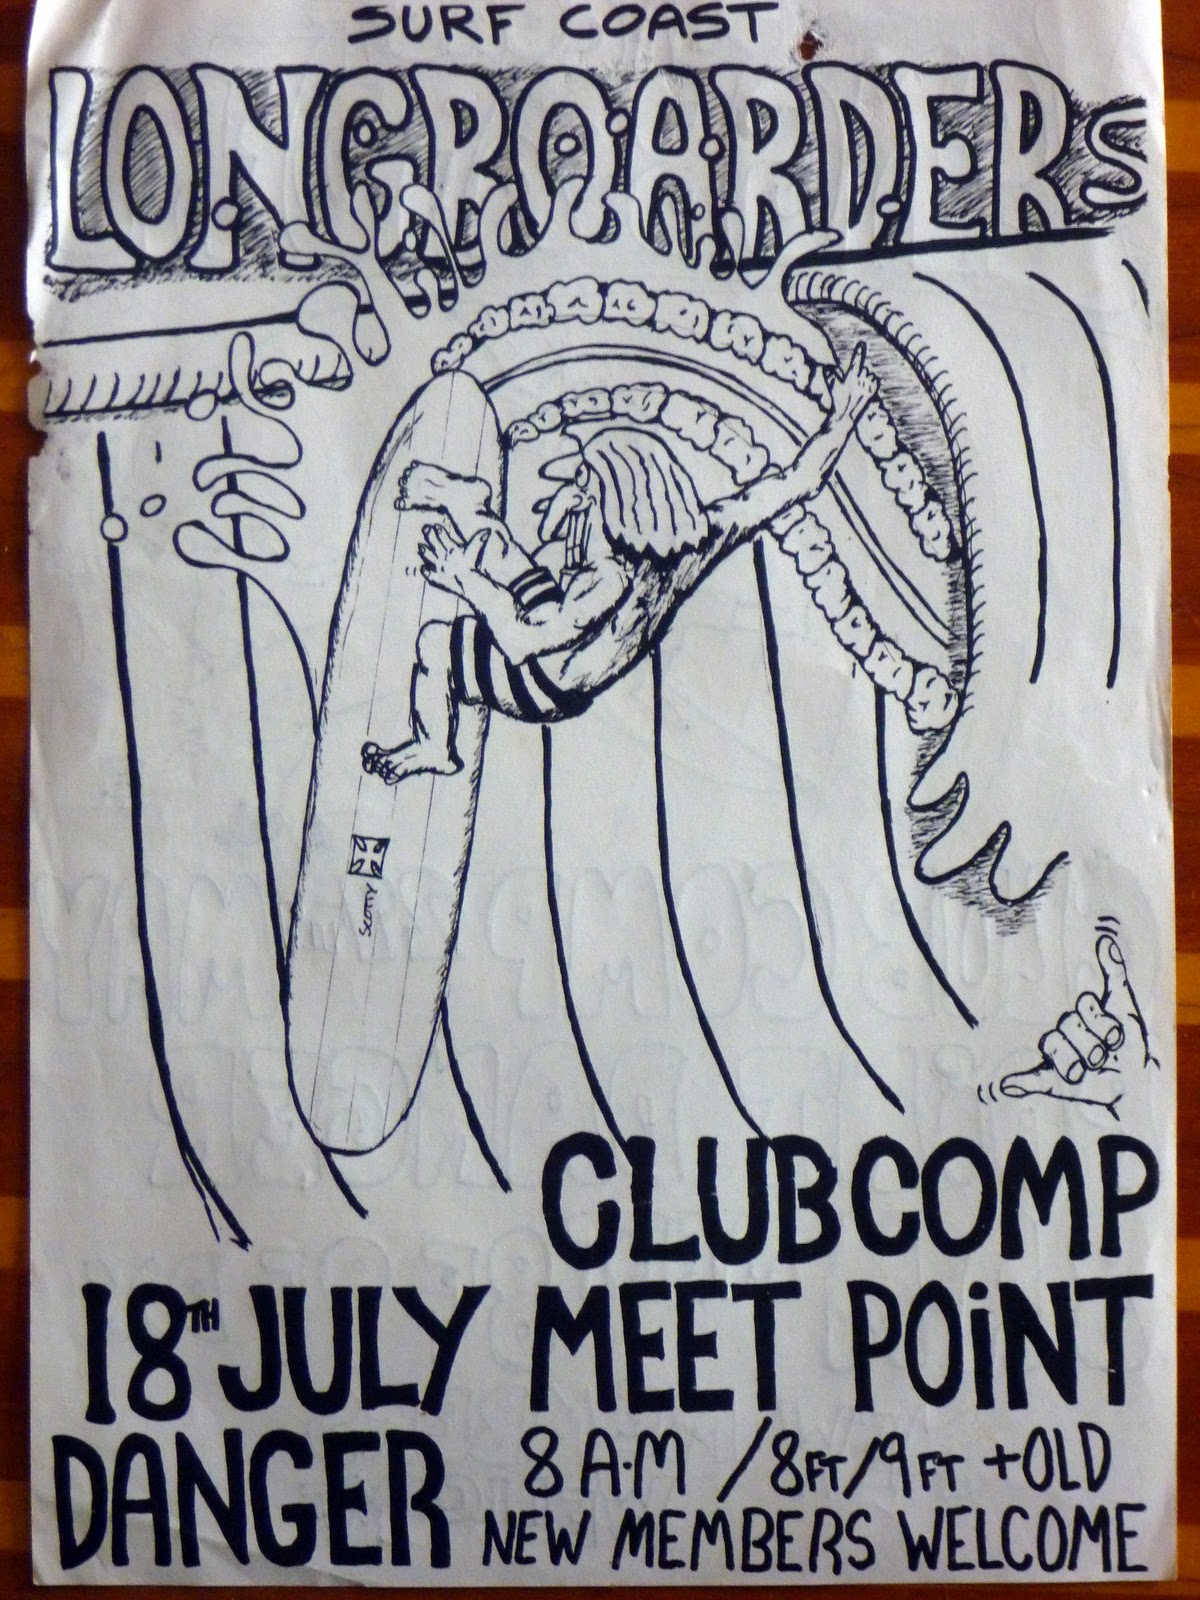 SURF COAST
LONGBOARDERS
SCOTTY
CLUB COMP
18TH JULY MEET POiNT
DANGER 8 A.M /8FT/9FT +OLD
NEW MEMBERS WELCOME